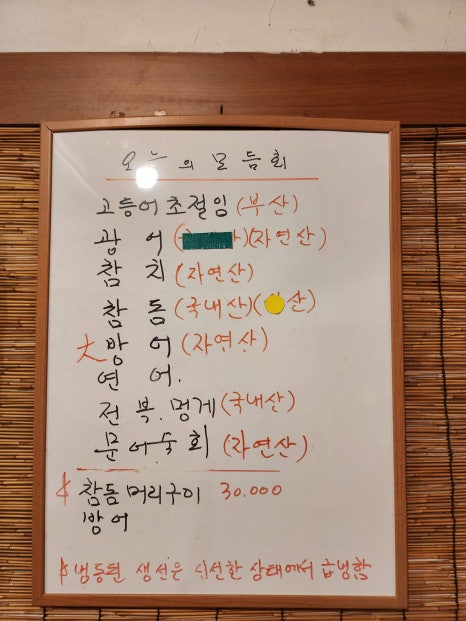 오늘의 모듬회
고등어초절임 (부산)
광어 (자연산)
참치 (자연산)
참돔 (국내산)
大방어 (자연산)
연어.
전복.멍게 (국내산)
문어숙회 (자연산)
참돔머리구이 30.000
방어
냉동된 생선은 신선한 상태에서 급냉함